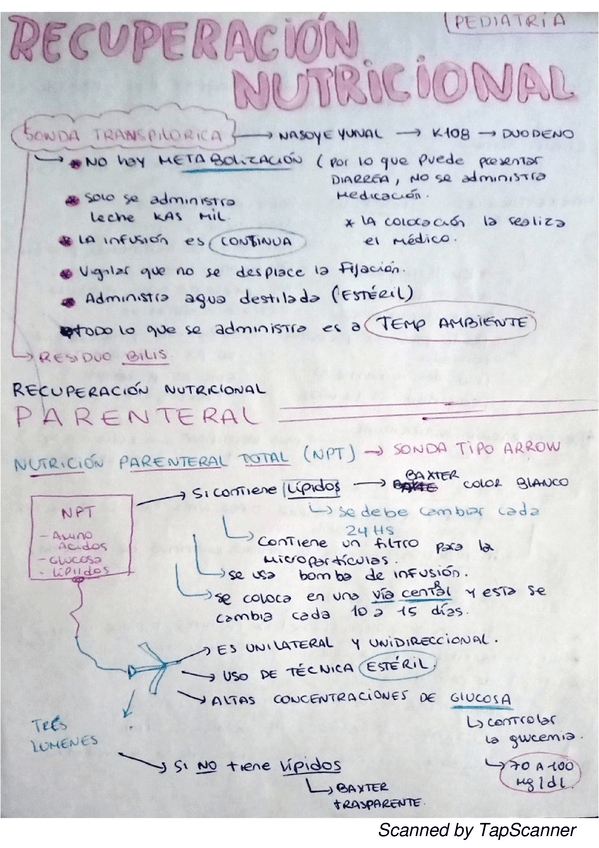 PEDIATRÍA
RECUPERACIÓN
NUTRICIONAL
SONDA TRANSPILORICA → NASOYEYUNAL → K108 → DUODENO
→ * NO hay METABOLIZACIÓN (por lo que puede presentar
DIARREA, NO se administra
medicación.
* Solo se administra
leche KAS MIL.
* LA colocación la realiza
el médico.
* LA infusión es CONTINUA
* Vigilar que no se desplace la fijación.
* Administra agua destilada (ESTÉRIL)
* TODO lo que se administra es a TEMP AMBIENTE
→ RESIDUO BILIS
RECUPERACIÓN NUTRICIONAL
PARENTERAL
NUTRICIÓN PARENTERAL TOTAL (NPT) → SONDA TIPO ARROW
NPT
- Amino
Acidos
- Glucosa
- Lípidos
→ Si contiene Lípidos → BAXTER COLOR BLANCO
↳ Se debe cambiar cada
24 HS
↳ Contiene un filtro para la
micropartículas.
↳ se usa bomba de infusión.
↳ se coloca en una vía central y esta se
cambia cada 10 a 15 días.
→ ES UNILATERAL Y UNIDIRECCIONAL.
→ USO DE TÉCNICA ESTÉRIL
→ ALTAS CONCENTRACIONES DE GLUCOSA
↳ controlar
la glucemia.
↳ 70 A 100
mg/dl.
TRES
LUMENES
→ Si NO tiene lípidos
↳ BAXTER
TRASPARENTE.
Scanned by TapScanner